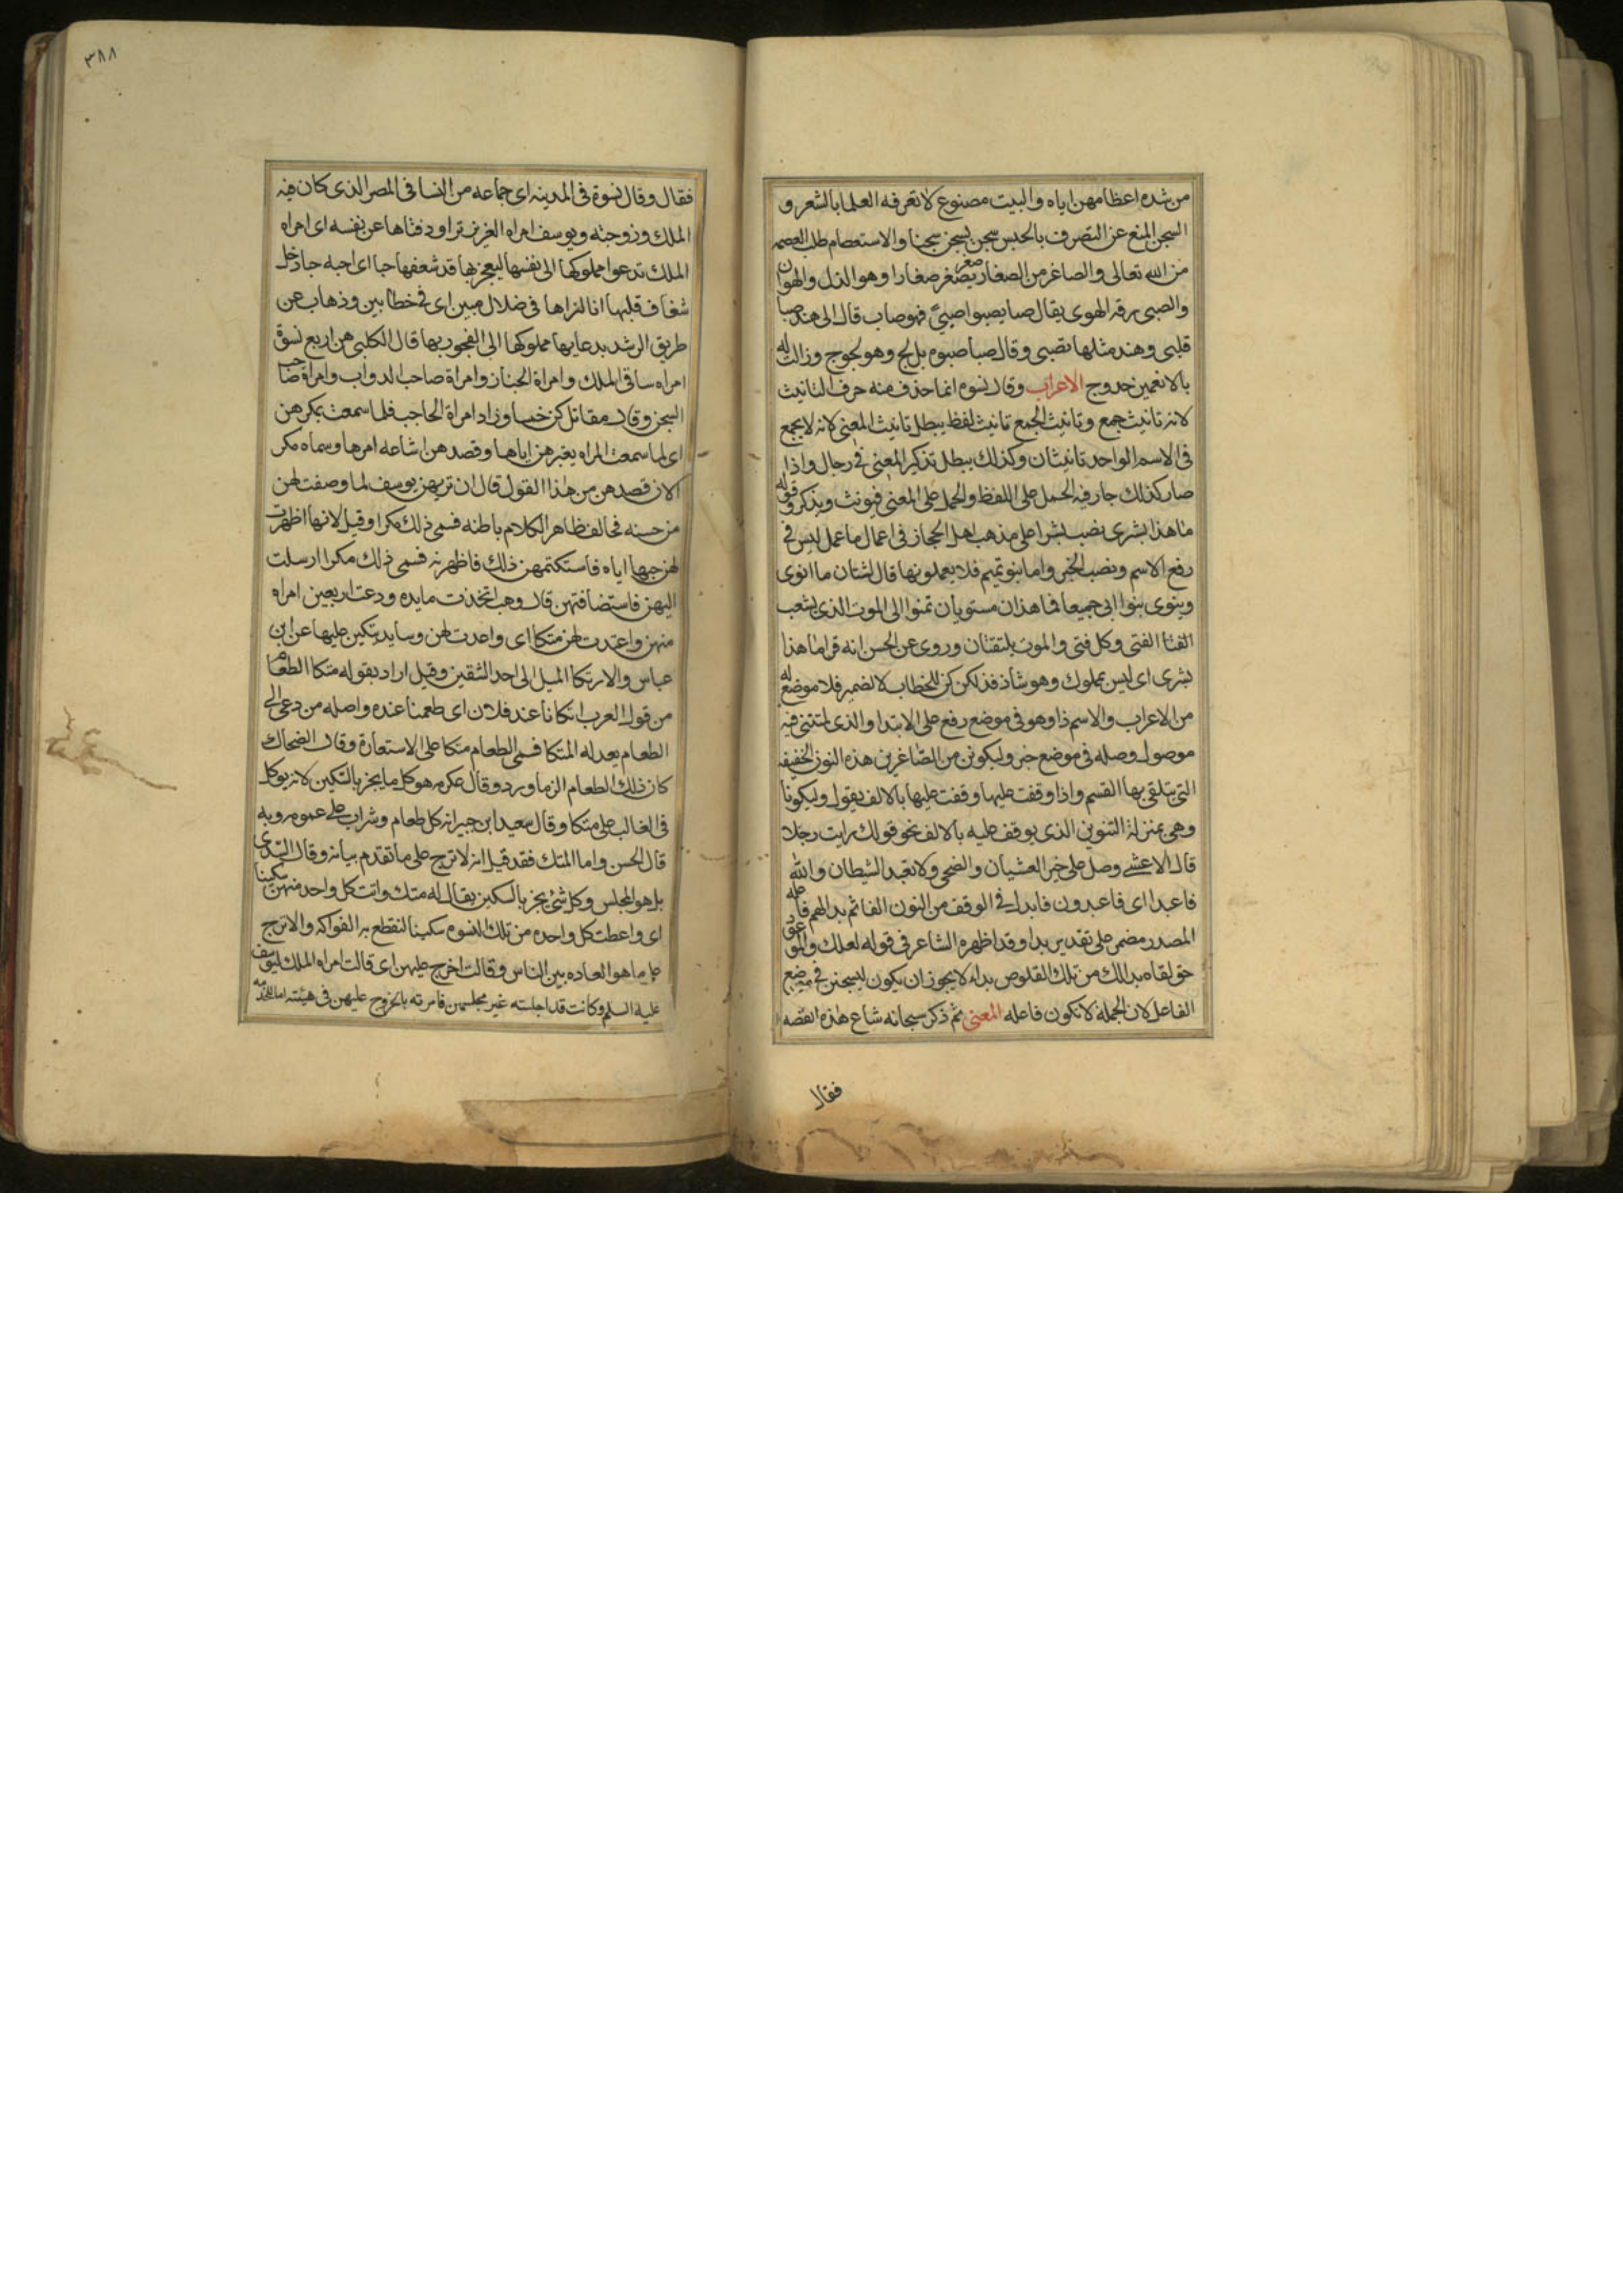 من شده اعظامهن اياه والبيت مصنوع لا تعرفه العلما بالشعر و
السجن المنع عن التصرف بالحبس سجن يسجن سجنا والاستعصام طلب العصمه
من الله تعالى والصاغر من الصغار يصغر صغر صغارا وهو الذل والهوان
والصبى رقه الهوى يقال صبا يصبوا صبىً فهو صاب قال الى هند صبا
قلبى وهند مثلها تصبى وقال صبا صبوه بل لج وهو لجوج وزالت له
بالانعمين حدوج الاعراب وقال نسوه انما حذف منه حرف التانيث
لانه تانيث جمع وتانيث الجمع تانيث لفظ يبطل تانيث المعنى لانه لا يجمع
فى الاسم الواحد تانيثان وكذلك يبطل تذكير المعنى فى رجال واذا
صار كذلك جاز فيه الحمل على اللفظ والحمل على المعنى فيونث ويذكر وقوله
ما هذا بشرى نصب بشرا على مذهب اهل الحجاز فى اعمال ما عمل ليس فى
رفع الاسم ونصب الخبر واما بنو تميم فلا يعملونها قال لشتان ما انوى
وينوى بنوا ابى جميعا فما هذان مستويان تمنوا الى الموت الذى يشعب
الفتا الفتى وكل فتى والموت يلتقتان وروى عن الحسن انه قرا ما هذا
بشرى اى ليس بمملوك وهو شاذ فذلكن كن للخطاب لا لضمير فلا موضع له
من الاعراب والاسم ذا وهو فى موضع رفع على الابتدا والذى لمتننى فيه
موصول وصله فى موضع خبر وليكونن من الصّاغرين هذه النون الخفيفه
التى يتلقى بها القسم واذا وقفت عليها وقفت عليها بالالف يقول وليكونا
وهى بمنزلة التنوين الذى يوقف عليه بالالف نحو قولك رايت رجلا
قال الاعشى وصل على خير العشيان والضحى ولا تعبد الشيطان والله
فاعبدا اى فاعبدون فابدل فى الوقف من النون الفا ثم بدا لهم فاعله
المصدر مضمر على تقدير بدا وقد اظهره الشاعر فى قوله لعلك والموعو
حق لقاه بدا لك من تلك القلوص بداء لا يجوز ان يكون ليسجنن فى موضع
الفاعل لان الجملة لا تكون فاعله المعنى ثم ذكر سبحانه شاع هذه القصه
فقال
٣٨٨
فقال وقال نسوة فى المدينه اى جماعه من النسا فى المصر الذى كان فيه
الملك وزوجته ويوسف امراه العزيز تراود فتاها عن نفسه اى امراه
الملك تدعوا مملوكها الى نفسها ليفجر بها قد شغفها حبا اى احبه حبا دخل
شغاف قلبها انا لنراها فى ضلال مبين اى فى خطا بين وذهاب عن
طريق الرشد بدعايها مملوكها الى الفجور بها قال الكلبى هن اربع نسوة
امراه ساقى الملك وامراة الخباز وامراة صاحب الدواب وامراة صاحب
السجن وقال مقاتل كن خمسا وزاد امراة الحاجب فلما سمعت بمكرهن
اى لما سمعت المراه بعيرهن اياها وقصدهن اشاعه امرها وسماه مكر
لان قصدهن من هذا القول قال ان تريهن يوسف لما وصفت لهن
من حسنه فخالف ظاهر الكلام باطنه فسمى ذلك مكرا وقيل لانها اظهرت
لهن حبها اياه فاستكتمهن ذلك فاظهرنه فسمى ذلك مكرا ارسلت
اليهن فاستضافتهن قال وهب اتخذت مايده ودعت اربعين امراه
منهن واعتدت لهن متكا اى واعدت لهن وسايد يتكين عليها عن ابن
عباس والارتكا الميل الى احد الشقين وقيل اراد بقوله متكا الطعام
من قول العرب اتكانا عند فلان اى طعمنا عنده واصله من دعى الى
الطعام يعد له المتكا فسمى الطعام متكا على الاستعارة وقال الضحاك
كان ذلك الطعام الزماورد وقال عكرمه هو كل ما يحز بالسكين لانه يوكل
فى الغالب على متكا وقال سعيد ابن جبير انه كل طعام وشراب على عمومه وبه
قال الحسن واما المتك فقد قيل انه لاترج على ما تقدم بيانه وقال السّدى
بل هو المجلس وكل شئ يحز بالسكين يقال له متك واتت كل واحد منهن سكينا
اى واعطت كل واحده من تلك النسوه سكينا لتقطع به الفواكه والاترج
على ما هو العاده بين الناس وقالت اخرج عليهن اى قالت امراه الملك ليوسف
عليه السلم وكانت قد اجلسته غير مجلسهن فامرته بالخروج عليهن فى هيئته اما للخدمه